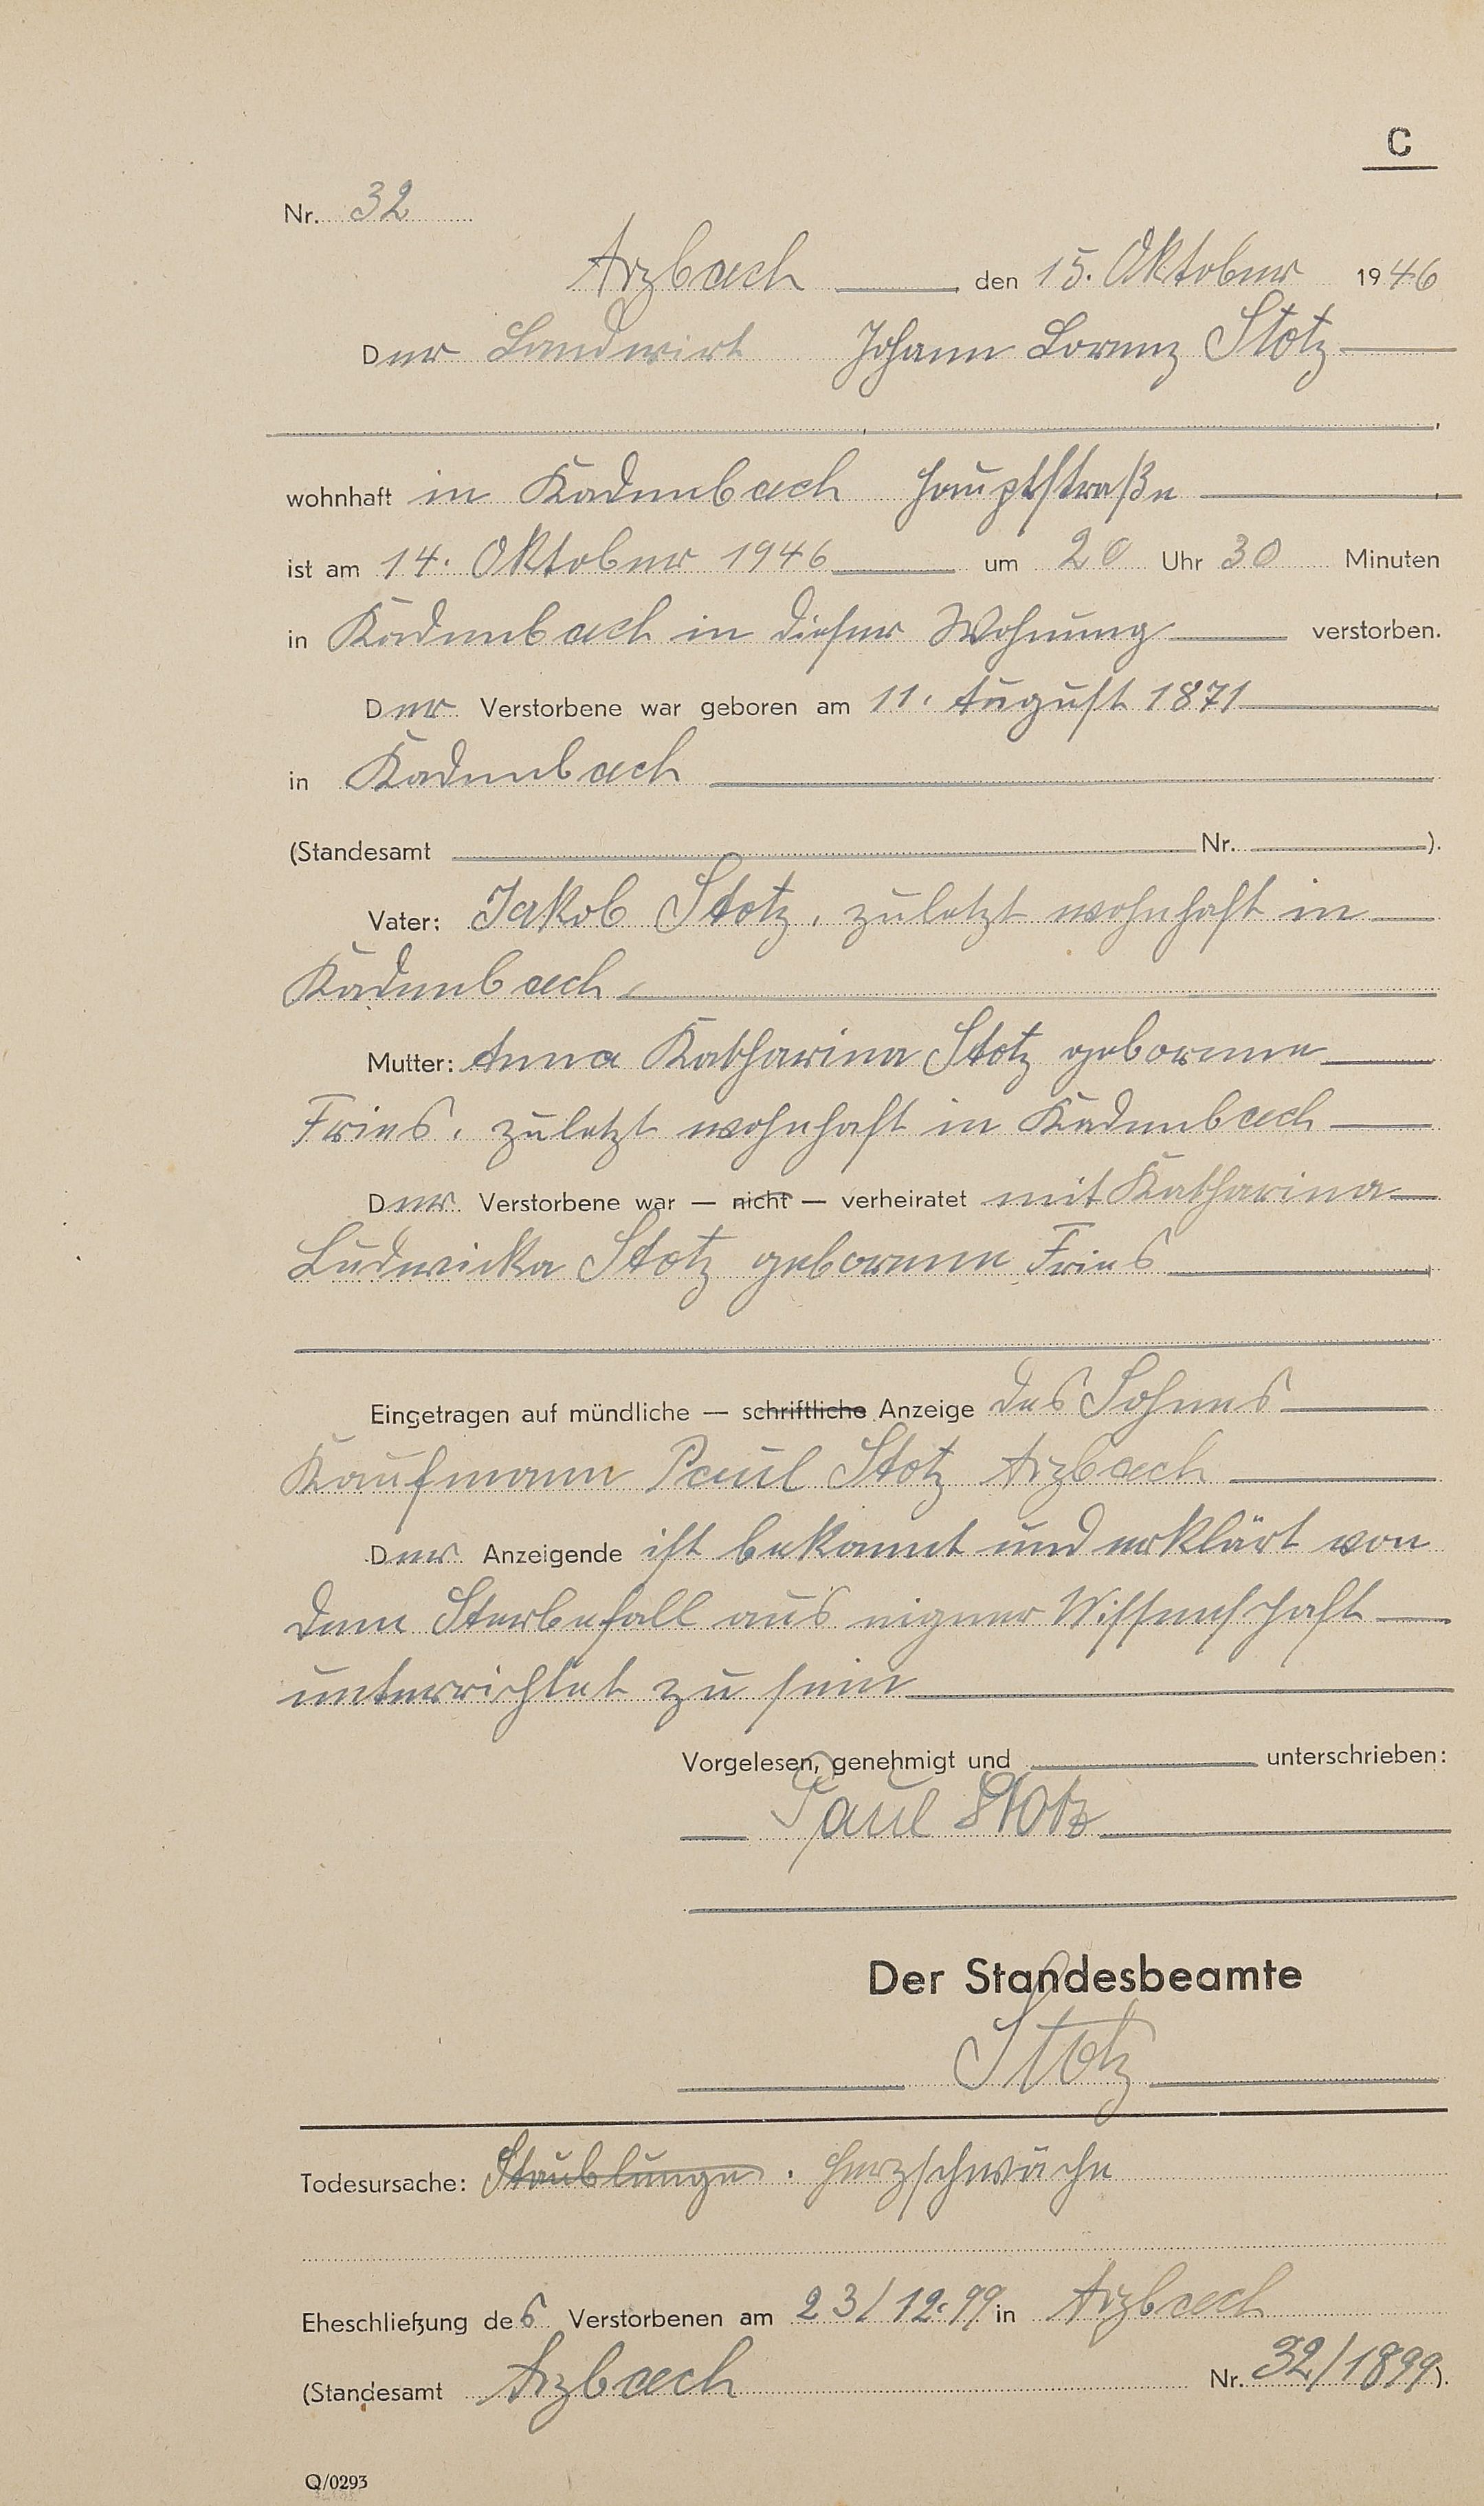 C
Nr. 32
Arzbach den 15. Oktober 1946
Der Landwirt Johann Lorenz Stotz
wohnhaft in Kadenbach Hauptstraße
ist am 14. Oktober 1946 um 20 Uhr 30 Minuten
in Kadenbach in dieser Wohnung verstorben.
Der Verstorbene war geboren am 11. August 1871
in Kadenbach
(Standesamt Nr. ).
Vater: Jakob Stotz, zuletzt wohnhaft in
Kadenbach,
Mutter: Anna Katharina Stotz geborene
Fries, zuletzt wohnhaft in Kadenbach
Der Verstorbene war — nicht — verheiratet mit Katharina
Ludwicka Stotz geborene Fries
Eingetragen auf mündliche — schriftliche Anzeige des Sohnes
Kaufmann Paul Stotz Arzbach
Der Anzeigende ist bekannt und erklärt von
dem Sterbefall aus eigner Wissenschaft
unterrichtet zu sein
Vorgelesen, genehmigt und unterschrieben:
Paul Stotz
Der Standesbeamte
Stotz
Todesursache: Staublunge. Herzschwäche
Eheschließung des Verstorbenen am 23/12.99 in Arzbach
(Standesamt Arzbach Nr. 32/1899).
Q/0293